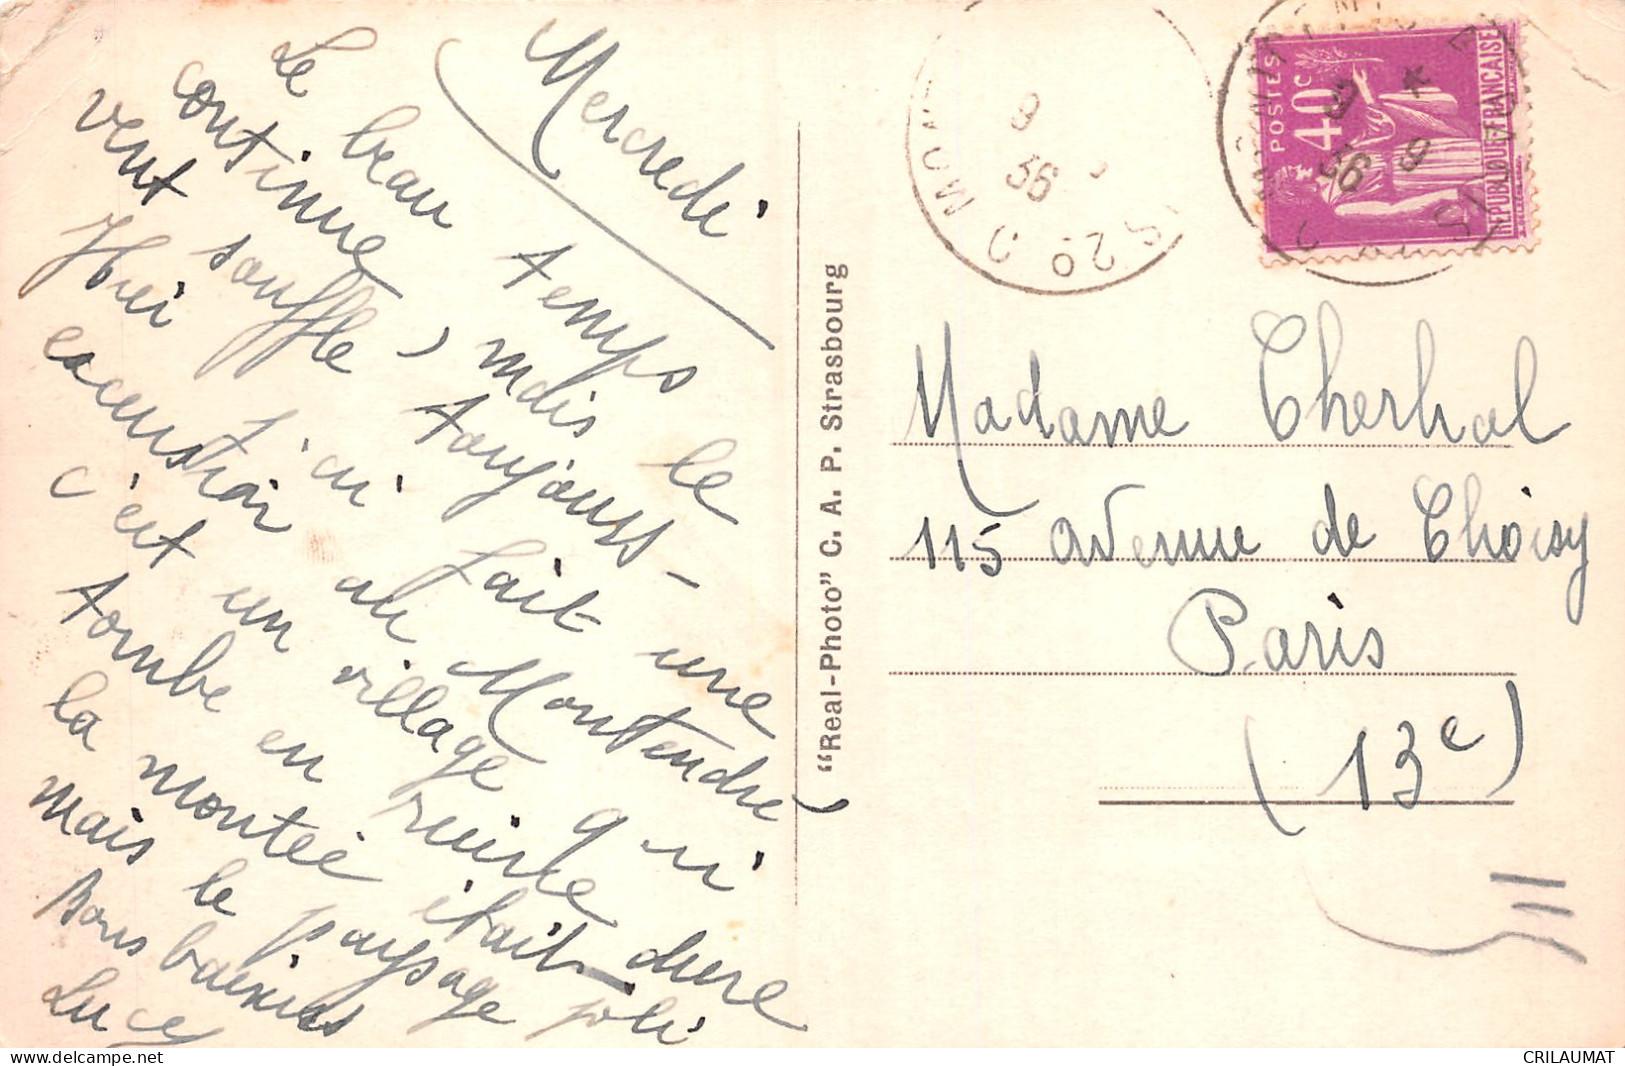 Mercredi
Le beau temps
continue, mais le
vent souffle toujours -
Hier j'ai fait une
excursion au Montendre,
c'est un village qui
tombe en ruine
la montée était dure
mais le paysage joli
Bons baisers
Lucey
"Real-Photo" C. A. P. Strasbourg
9
36
POSTES
40c
REPUBLIQUE FRANCAISE
9
9
36
Madame Cherhal
115 avenue de Choisy
Paris
(13e)
CRILAUMAT